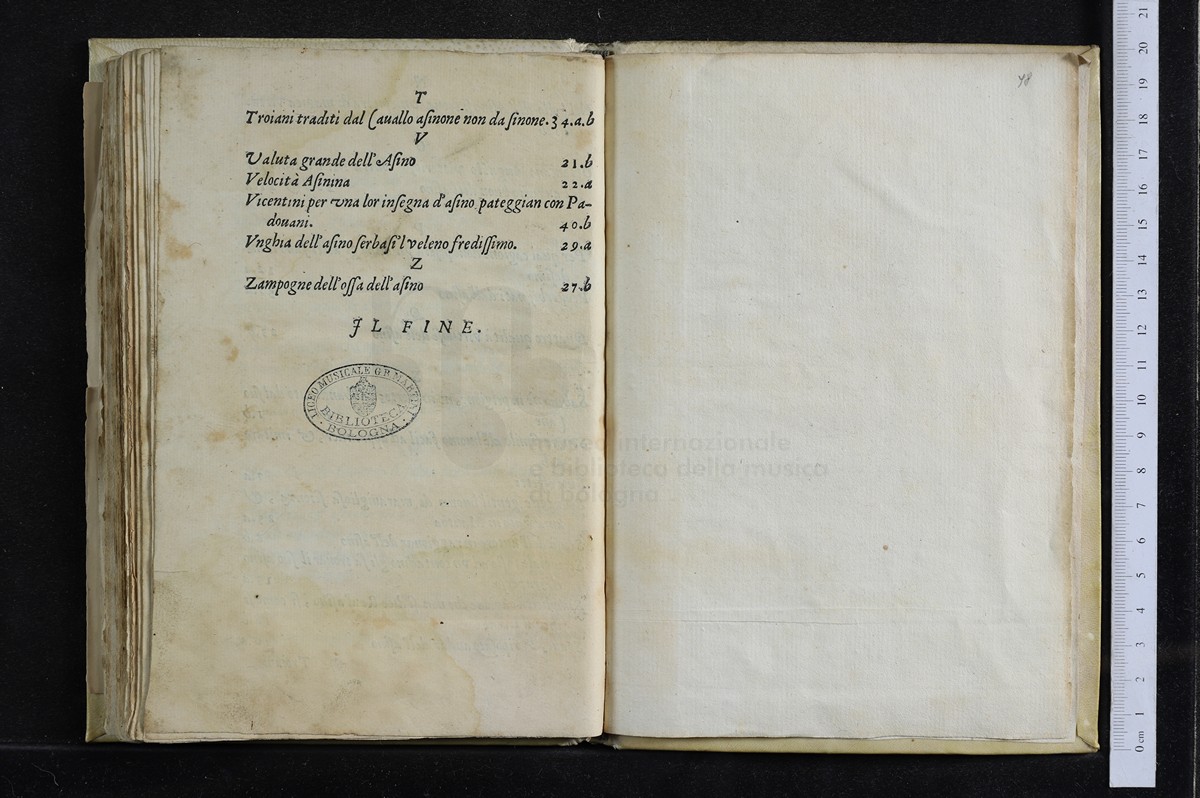 T
Troiani traditi dal Cauallo asinone non da sinone. 34.a.b
V
Valuta grande dell'Asino 21.b
Velocità Asinina 22.a
Vicentini per vna lor insegna d'asino pateggian con Pa-
douani. 40.b
Vnghia dell'asino serbasi'l veleno fredissimo. 29.a
Z
Zampogne dell'ossa dell'asino 27.b
IL FINE.
LICEO MUSICALE G.B. MARTINI
BIBLIOTECA
BOLOGNA
museo internazionale
e biblioteca della musica
di bologna
48
0 cm 1 2 3 4 5 6 7 8 9 10 11 12 13 14 15 16 17 18 19 20 21